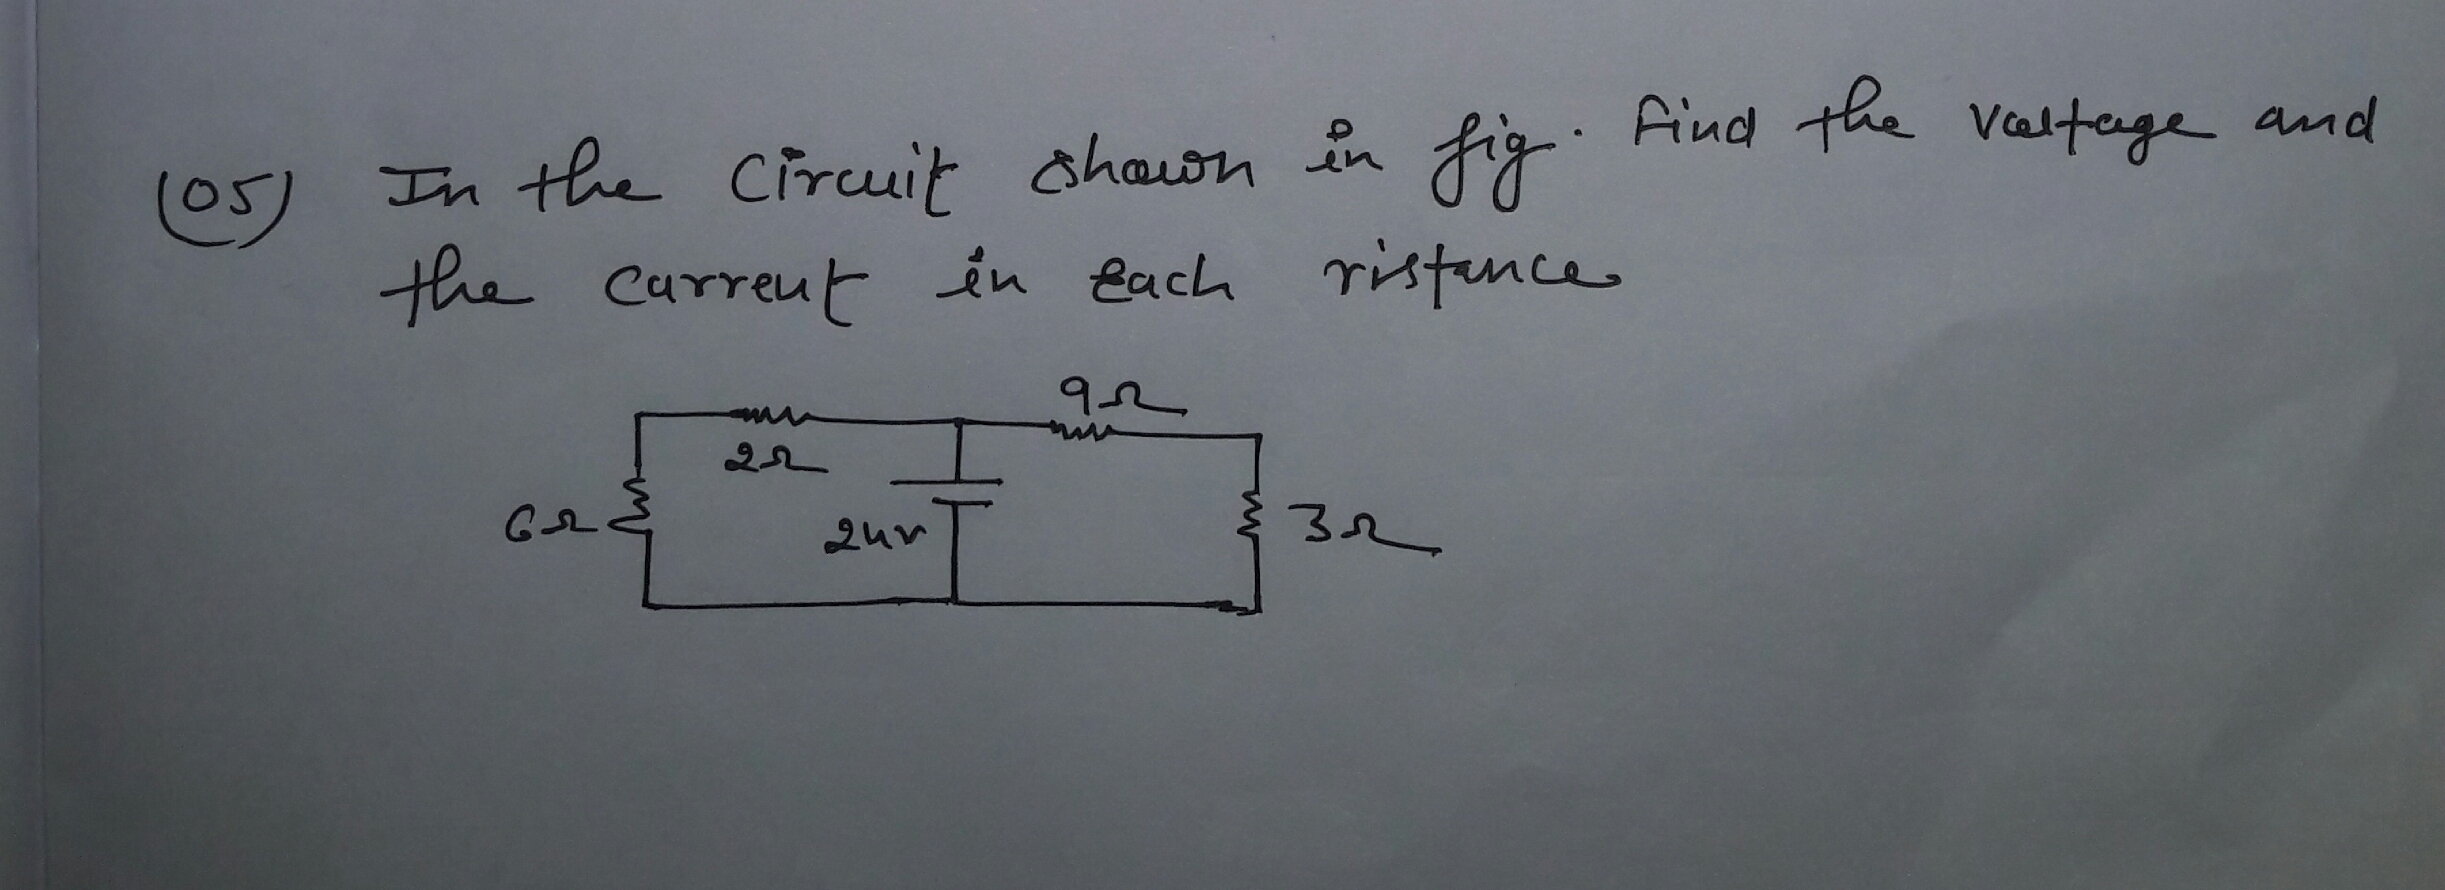 (05) In the Circuit shown in fig. find the voltage and
the current in each ristance
9Ω
2Ω
6Ω
24v
3Ω